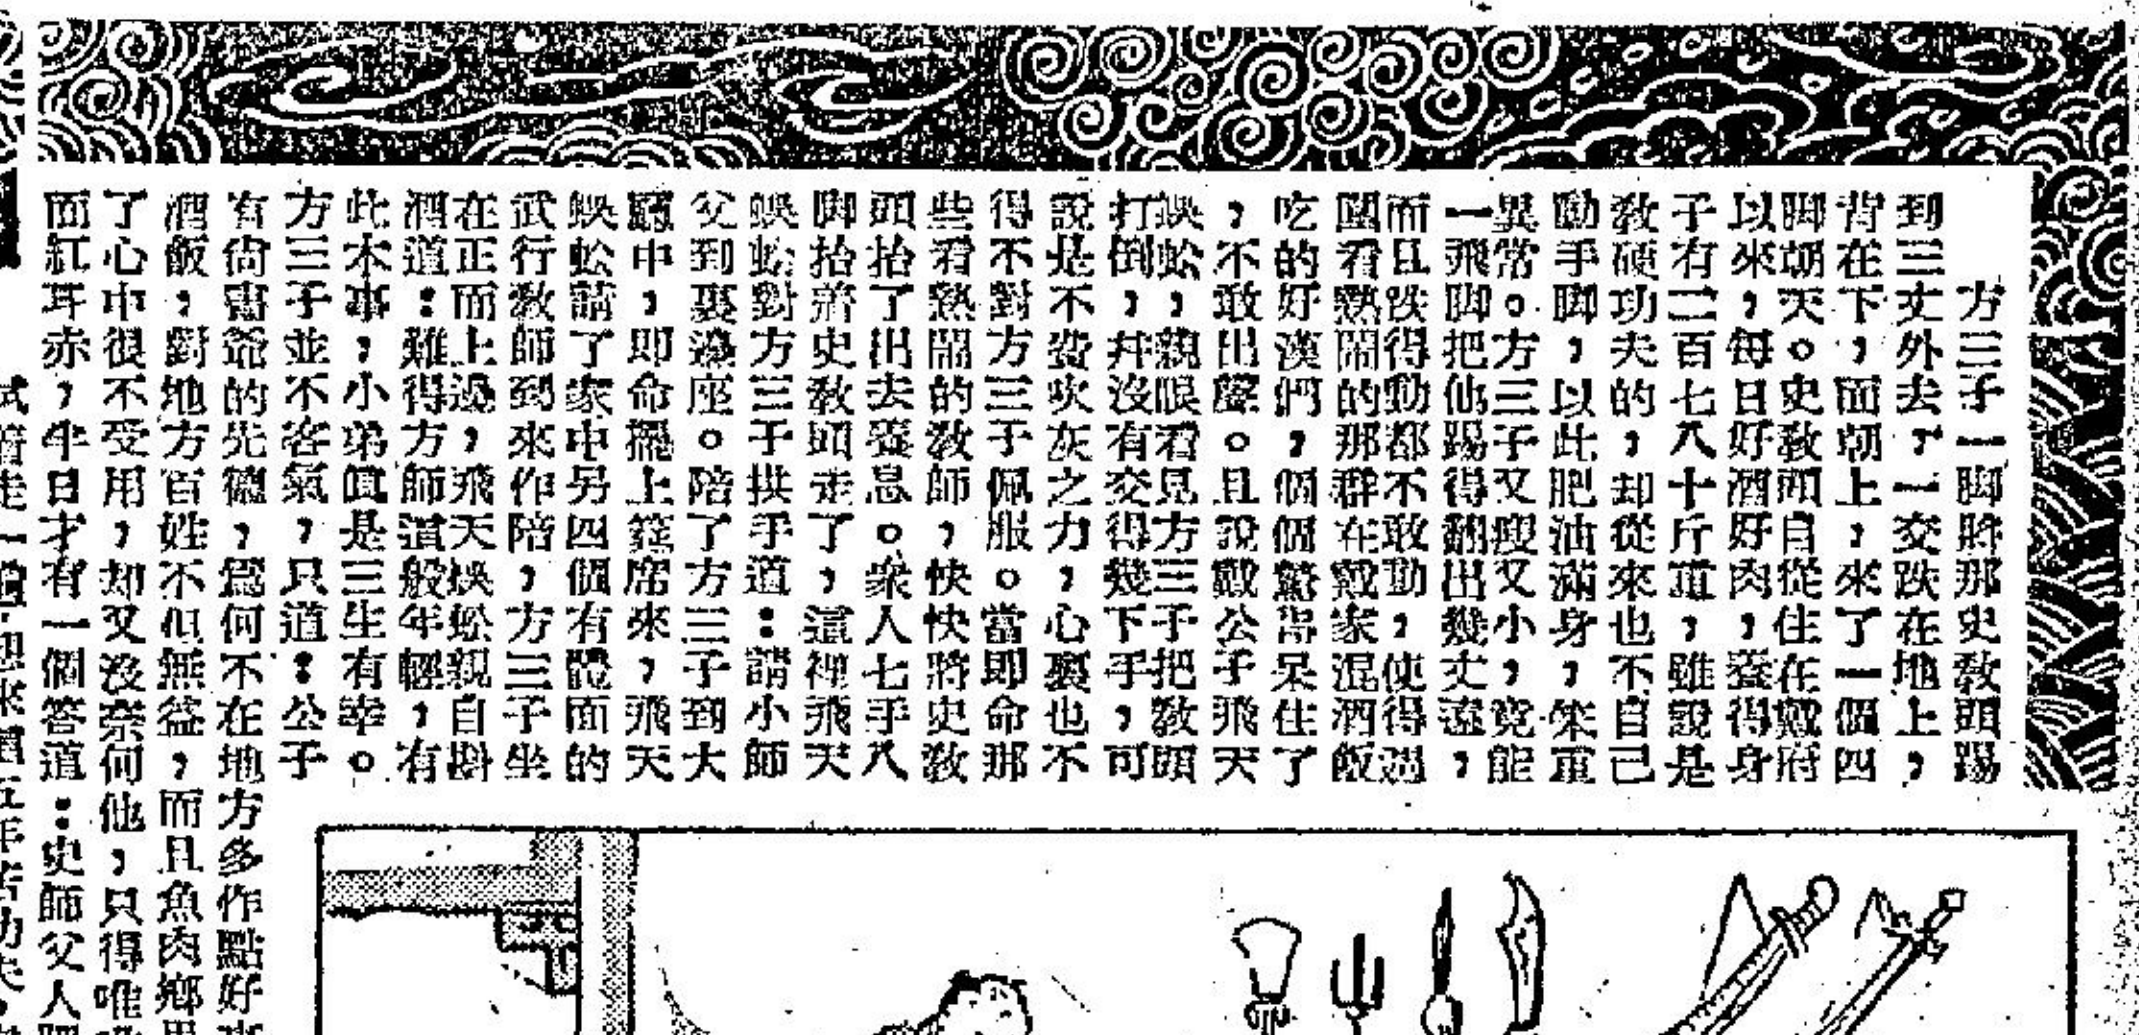 方三子一脚將那史敎頭踢
到三丈外去，一交跌在地上，
背在下，面朝上，來了一個四
脚朝天。史敎頭自從住在戴府
以來，每日好酒好肉，養得身
子有二百七八十斤重，雖說是
敎硬功夫的，却從來也不自己
動手脚，以此肥油滿身，笨重
異常。方三子又瘦又小，竟能
一飛脚把他踢得翻出幾丈遠，
而且跌得動都不敢動，使得過
圍看熱鬧的那群在戴家混酒飯
吃的好漢們，個個驚得呆住了
，不敢出聲。且說戴公子飛天
蜈蚣，親眼看見方三子把敎頭
打倒，幷沒有交得幾下手，可
說是不費吹灰之力，心裏也不
得不對方三子佩服。當即命那
些看熱鬧的敎師，快快將史敎
頭抬了出去養息。衆人七手八
脚抬着史敎頭走了，這裡飛天
蜈蚣對方三子拱手道：請小師
父到裏邊座。陪了方三子到大
廳中，即命擺上筵席來，飛天
蜈蚣請了家中另四個有體面的
武行敎師到來作陪，方三子坐
在正面上邊，飛天蜈蚣親自斟
酒道：難得方師這般年輕，有
此本事，小弟眞是三生有幸。
方三子並不客氣，只道：公子
有尙書爺的先德，爲何不在地方多作點好
酒飯，對地方百姓不但無益，而且魚肉鄉
了心中很不受用，却又沒奈何他，只得唯
面紅耳赤，半日才有一個答道：史師父人